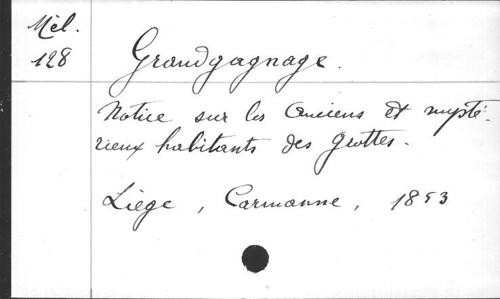 Mél.
128
Grandgagnage.
Notice sur les anciens et mysté-
rieux habitants des grottes.
Liège, Carmanne, 1853